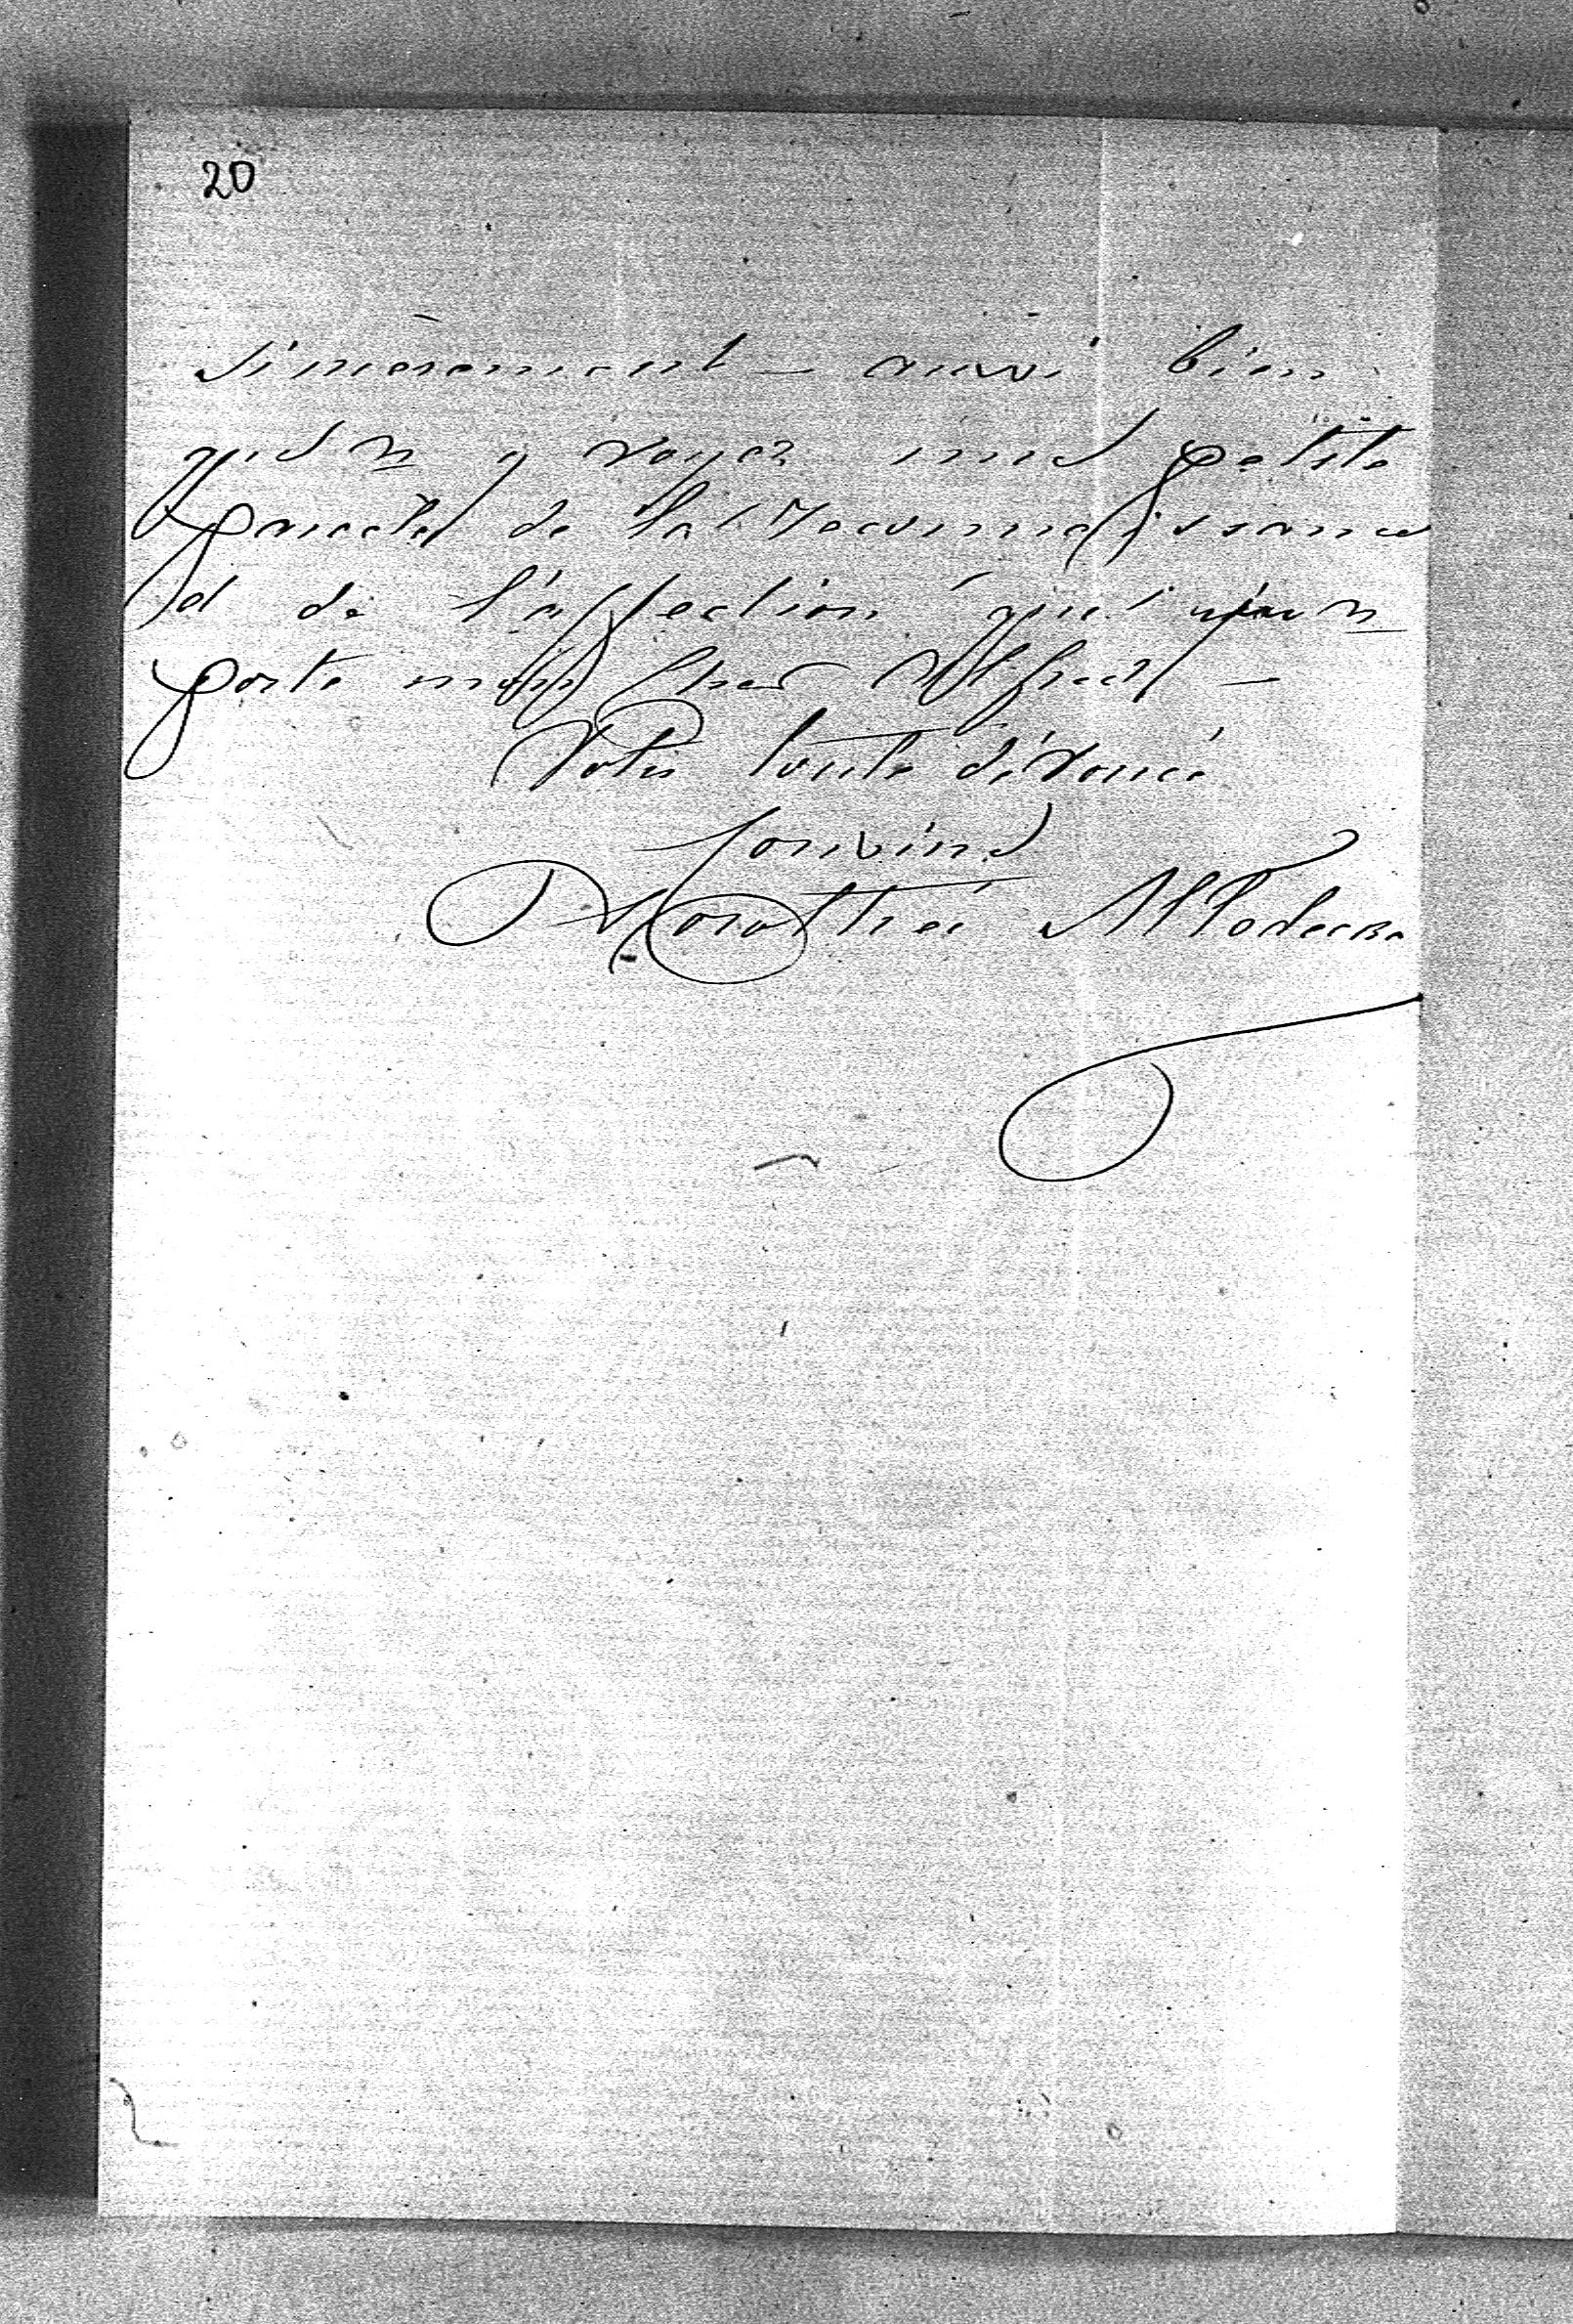 20
sincerement – aussi bien
que vs y voyez une petite
de la reconnaissance
et de l'affection que vous
porte mon cher Alfred –
Votre toute dévouée
Cousine
Dorothée